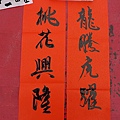 龍騰虎躍
桃花興隆